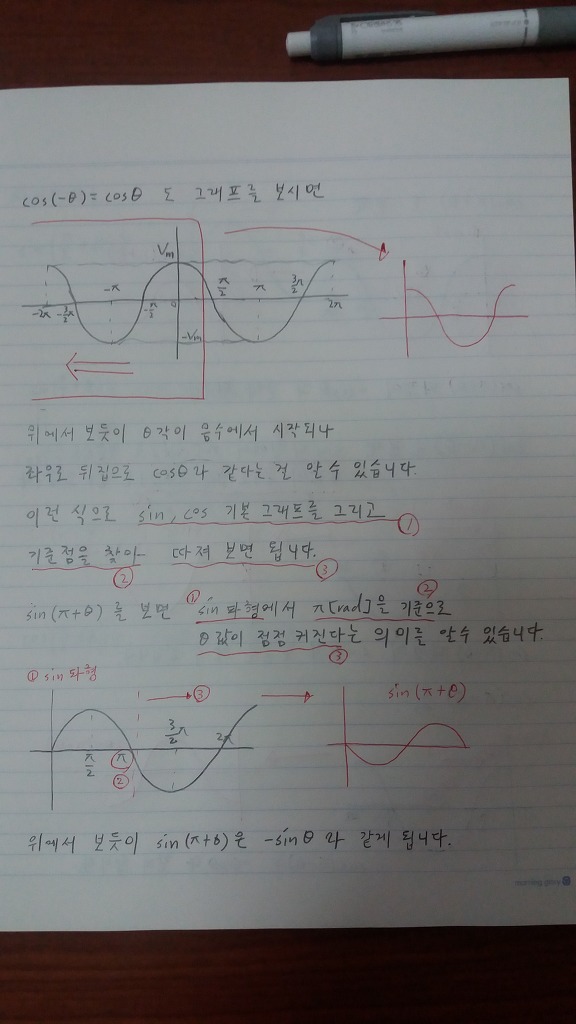 cos(-θ)=cosθ 도 그래프를 보시면
Vm
-2π -3/2π -π -π/2 0 π/2 π 3/2π 2π
-Vm
위에서 보듯이 θ각이 음수에서 시작되나
좌우로 뒤집으로 cosθ라 같다는 걸 알 수 있습니다.
이런 식으로 sin, cos 기본 그래프를 그리고 ①
기준점을 찾아 ② 따져 보면 됩니다. ③
sin(π+θ)를 보면 ① sin 파형에서 π[rad]을 기준으로 ②
θ값이 점점 커진다는 의미를 알수 있습니다. ③
① sin 파형
③
sin(π+θ)
π/2 π 3/2π 2π
②
위에서 보듯이 sin(π+θ)은 -sinθ라 같게 됩니다.
morning glory